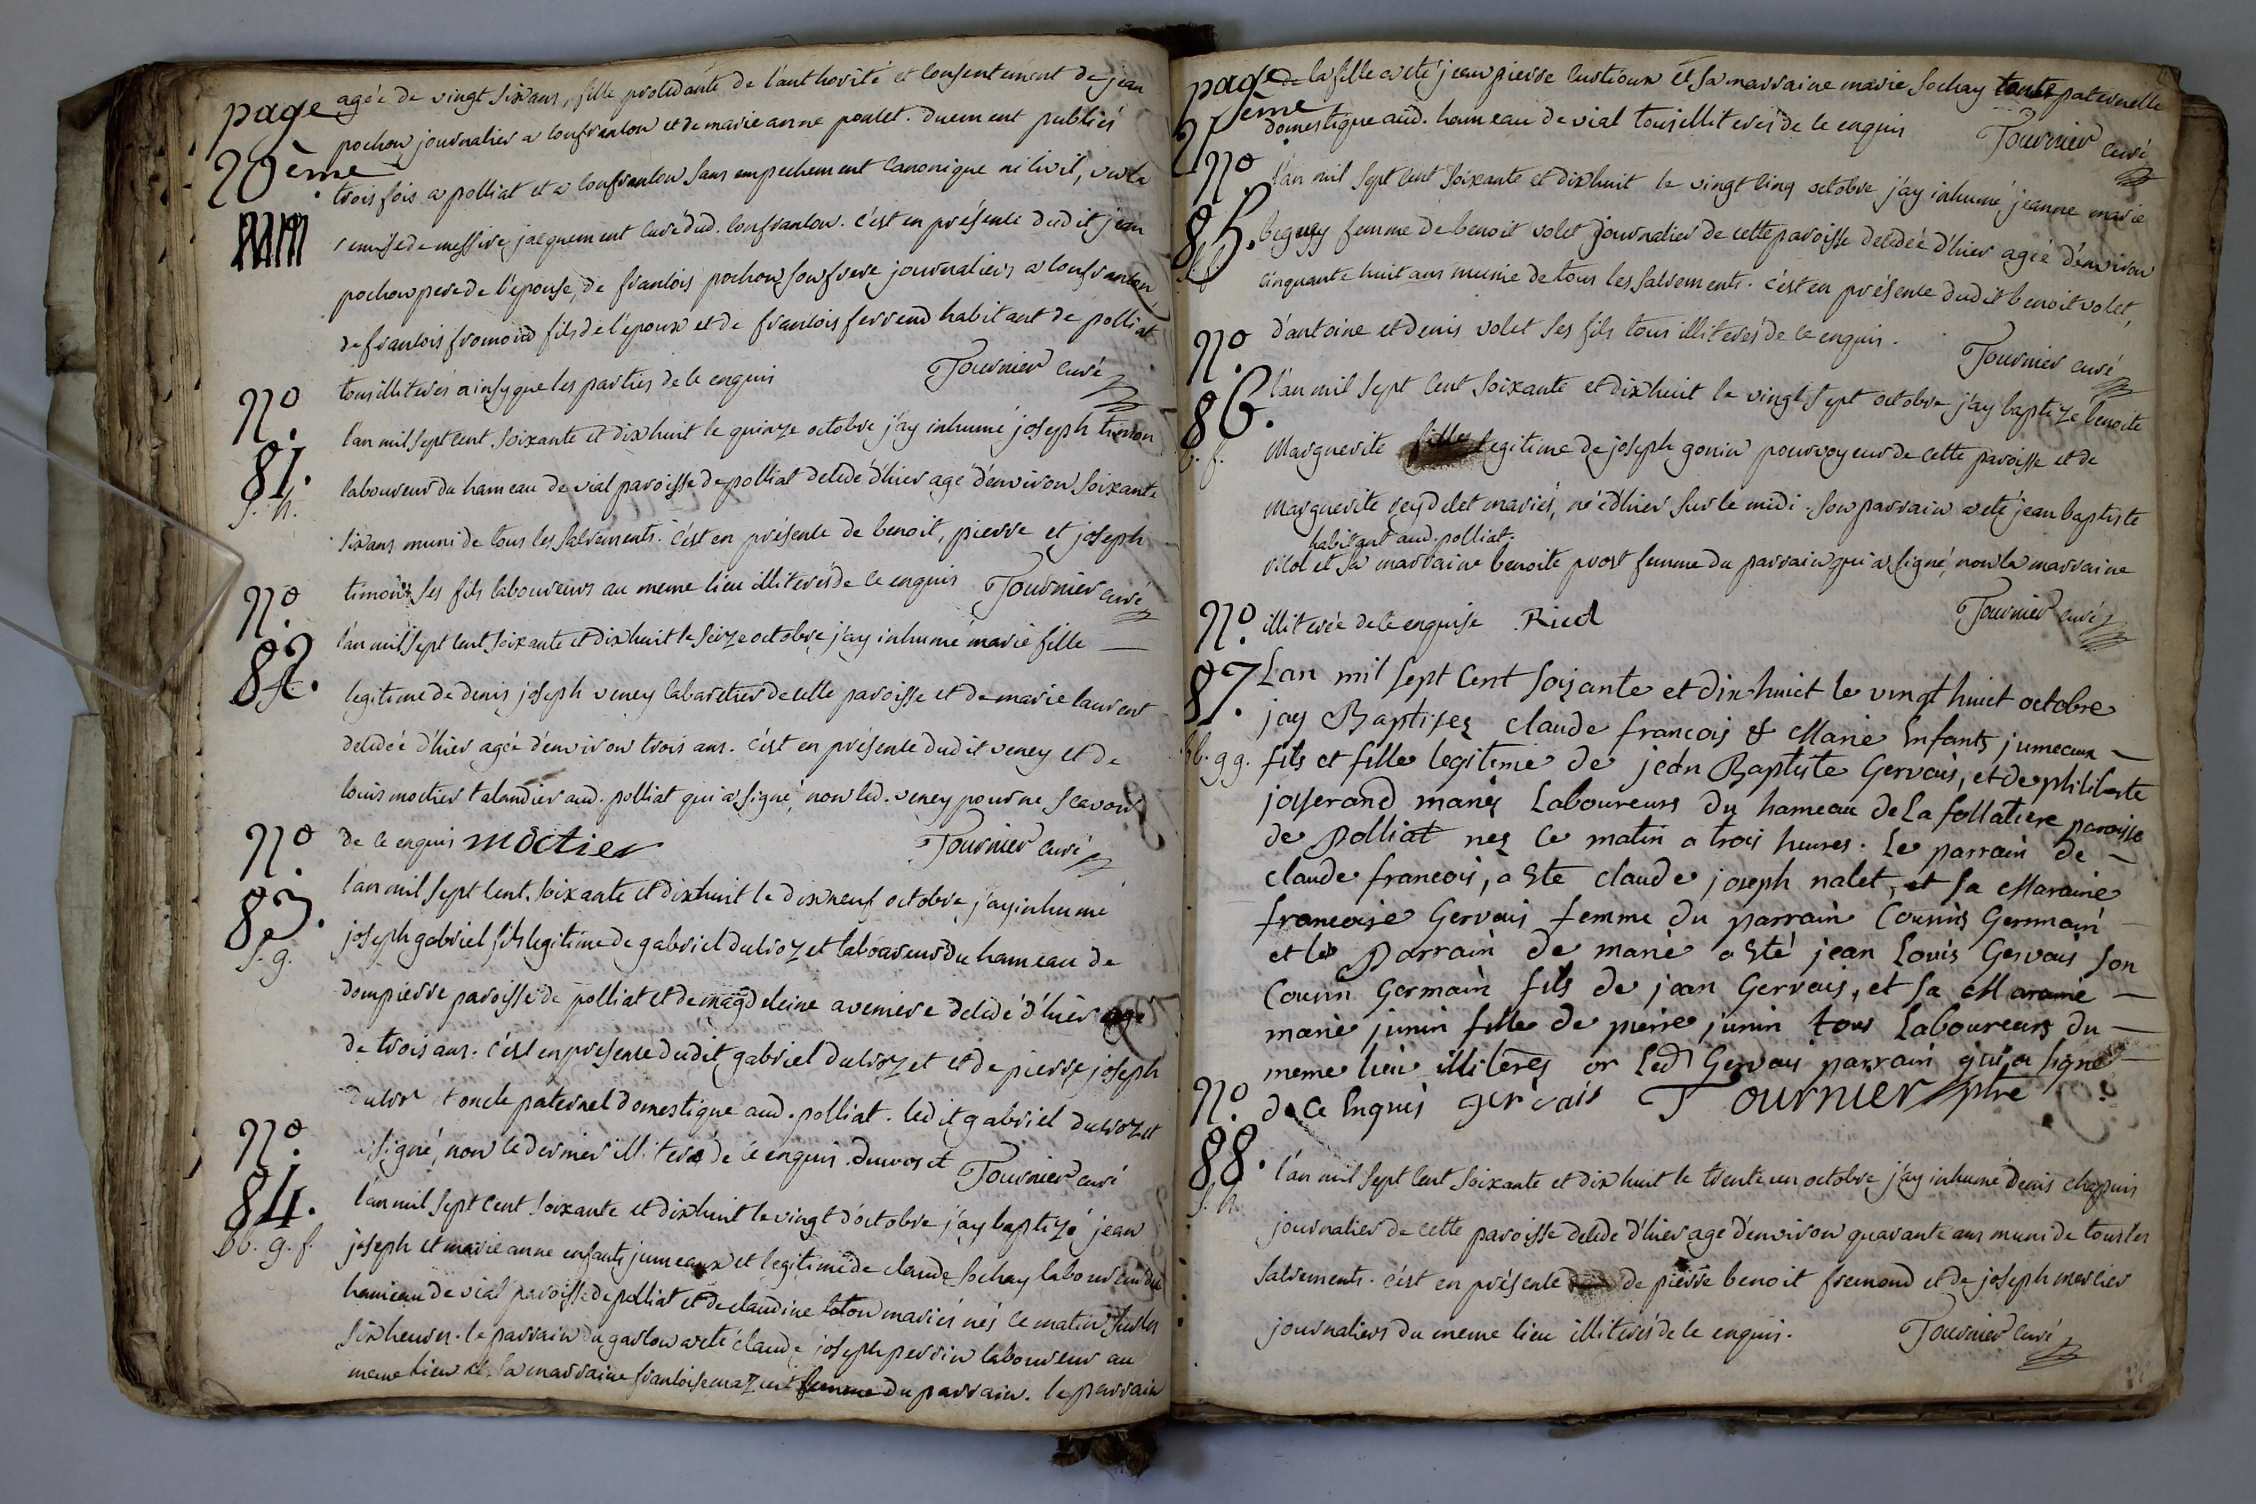 page
20ème
agée de vingt six ans, fille procedante de l'authorité et consentement de jean
pochon journalier a confrancon et de marie anne poulet. duement publiés
trois fois a polliat et a confrancon sans empechement canonique ni civil, vu la
remise de messire jacquement curé dud. confrancon. c'est en présence dudit jean
pochon pere de l'épouse, de francois pochon son frere journaliers a confrancon,
de francois fromond fils de l'époux et de francois ferrend habitant de polliat
tous illiterés ainsy que les parties de ce enquis Tournier curé
n.º 81. s. h.
l'an mil sept cent soixante et dixhuit le quinze octobre j'ay inhumé joseph timon
laboureur du hameau de vial paroisse de polliat decédé d'hier agé d'environ soixante
six ans muni de tous les sacrements. c'est en présence de benoit, pierre et joseph
timon ses fils laboureurs au meme lieu illiterés de ce enquis Tournier curé
n.º 82. s. f.
l'an mil sept cent soixante et dixhuit le seize octobre j'ay inhumé marie fille
legitime de denis joseph veney cabaretier de cette paroisse et de marie laurent
decédée d'hier agée d'environ trois ans. c'est en présence dudit veney et de
louis moctier talandier aud. polliat qui a signé, non led. veney pour ne scavoir
de ce enquis moctier Tournier curé
n.º 83. s. g.
l'an mil sept cent soixante et dixhuit le dixneuf octobre j'ay inhumé
joseph gabriel fils legitime de gabriel ducrozet laboureur du hameau de
dompierre paroisse de polliat et de magdeleine aveniere decedé d'hier agé
de trois ans. c'est en présence dudit gabriel ducrozet et de pierre joseph
oncle paternel domestique aud. polliat. ledit gabriel ducrozet
signé, non le dernier illiteré de ce enquis. ducroset Tournier curé
n.º 84. bb. g. f.
l'an mil sept cent soixante et dixhuit le vingt d'octobre j'ay baptizé jean
joseph et marie anne enfants jumeaux et legitime de claude sochay laboureur du
hameau de vial paroisse de polliat et de claudine marié nés ce matin sur les
six heures. le parrain du garcon a eté claude joseph perrin laboureur au
meme lieu et la marraine francoise femme du parrain. le parrain
page
21ème
de la fille a eté jean pierre et sa marraine marie sochay tante paternelle
domestique aud. hameau de vial tous illiterés de ce enquis Tournier curé
n.º 85.
l'an mil sept cent soixante et dixhuit le vingt cinq octobre j'ay inhumé jeanne marie
femme de benoit volet journalier de cette paroisse decedée d'hier agée d'environ
cinquante huit ans munie de tous les sacrements. c'est en présence dudit benoit volet,
d'antoine et denis volet ses fils tous illiterés de ce enquis. Tournier curé
n.º 86. b. f.
l'an mil sept cent soixante et dixhuit le vingt sept octobre j'ay baptizé benoite
Marguerite fille legitime de joseph gonin pourvoyeur de cette paroisse et de
Marguerite reydelet mariés, né d'hier sur le midi. son parrain a eté jean baptiste
habitant aud. polliat.
ricol et sa marraine benoite prost femme du parrain qui a signé, non la marraine
illiterée de ce enquise Ricol Tournier curé
n.º 87. bb. g g.
Lan mil sept Cent soixante et dix huict le vingt huict octobre
jay Baptisez claude francois & Marie Enfants jumeaux
fils et fille legitime de jean Baptiste Gervais, et de philiberte
josserand mariés Laboureurs du hameau de La follatiere paroisse
de Polliat nes ce matin a trois heures. Le parrain de
claude francois, a Eté claude joseph nalet, et sa Maraine
francoise Gervais femme du parrain Cousins Germain
et le Parrain de marie a Eté jean Louis Gervais son
Cousin Germain fils de jean Gervais, et sa Maraine
marie junin fille de pierre junin tous Laboureurs du
meme lieu illiterés or Led Gervais parrain qui a signé
de ce Enquis gervais Tournier ptre
n.º 88. s. h.
l'an mil sept cent soixante et dix huit le trente un octobre j'ay inhumé denis chapuis
journalier de cette paroisse decedé d'hier agé d'environ quarante ans muni de tous les
sacrements. c'est en présence de pierre benoit fremond et de joseph mercier
journaliers du meme lieu illiterés de ce enquis. Tournier curé